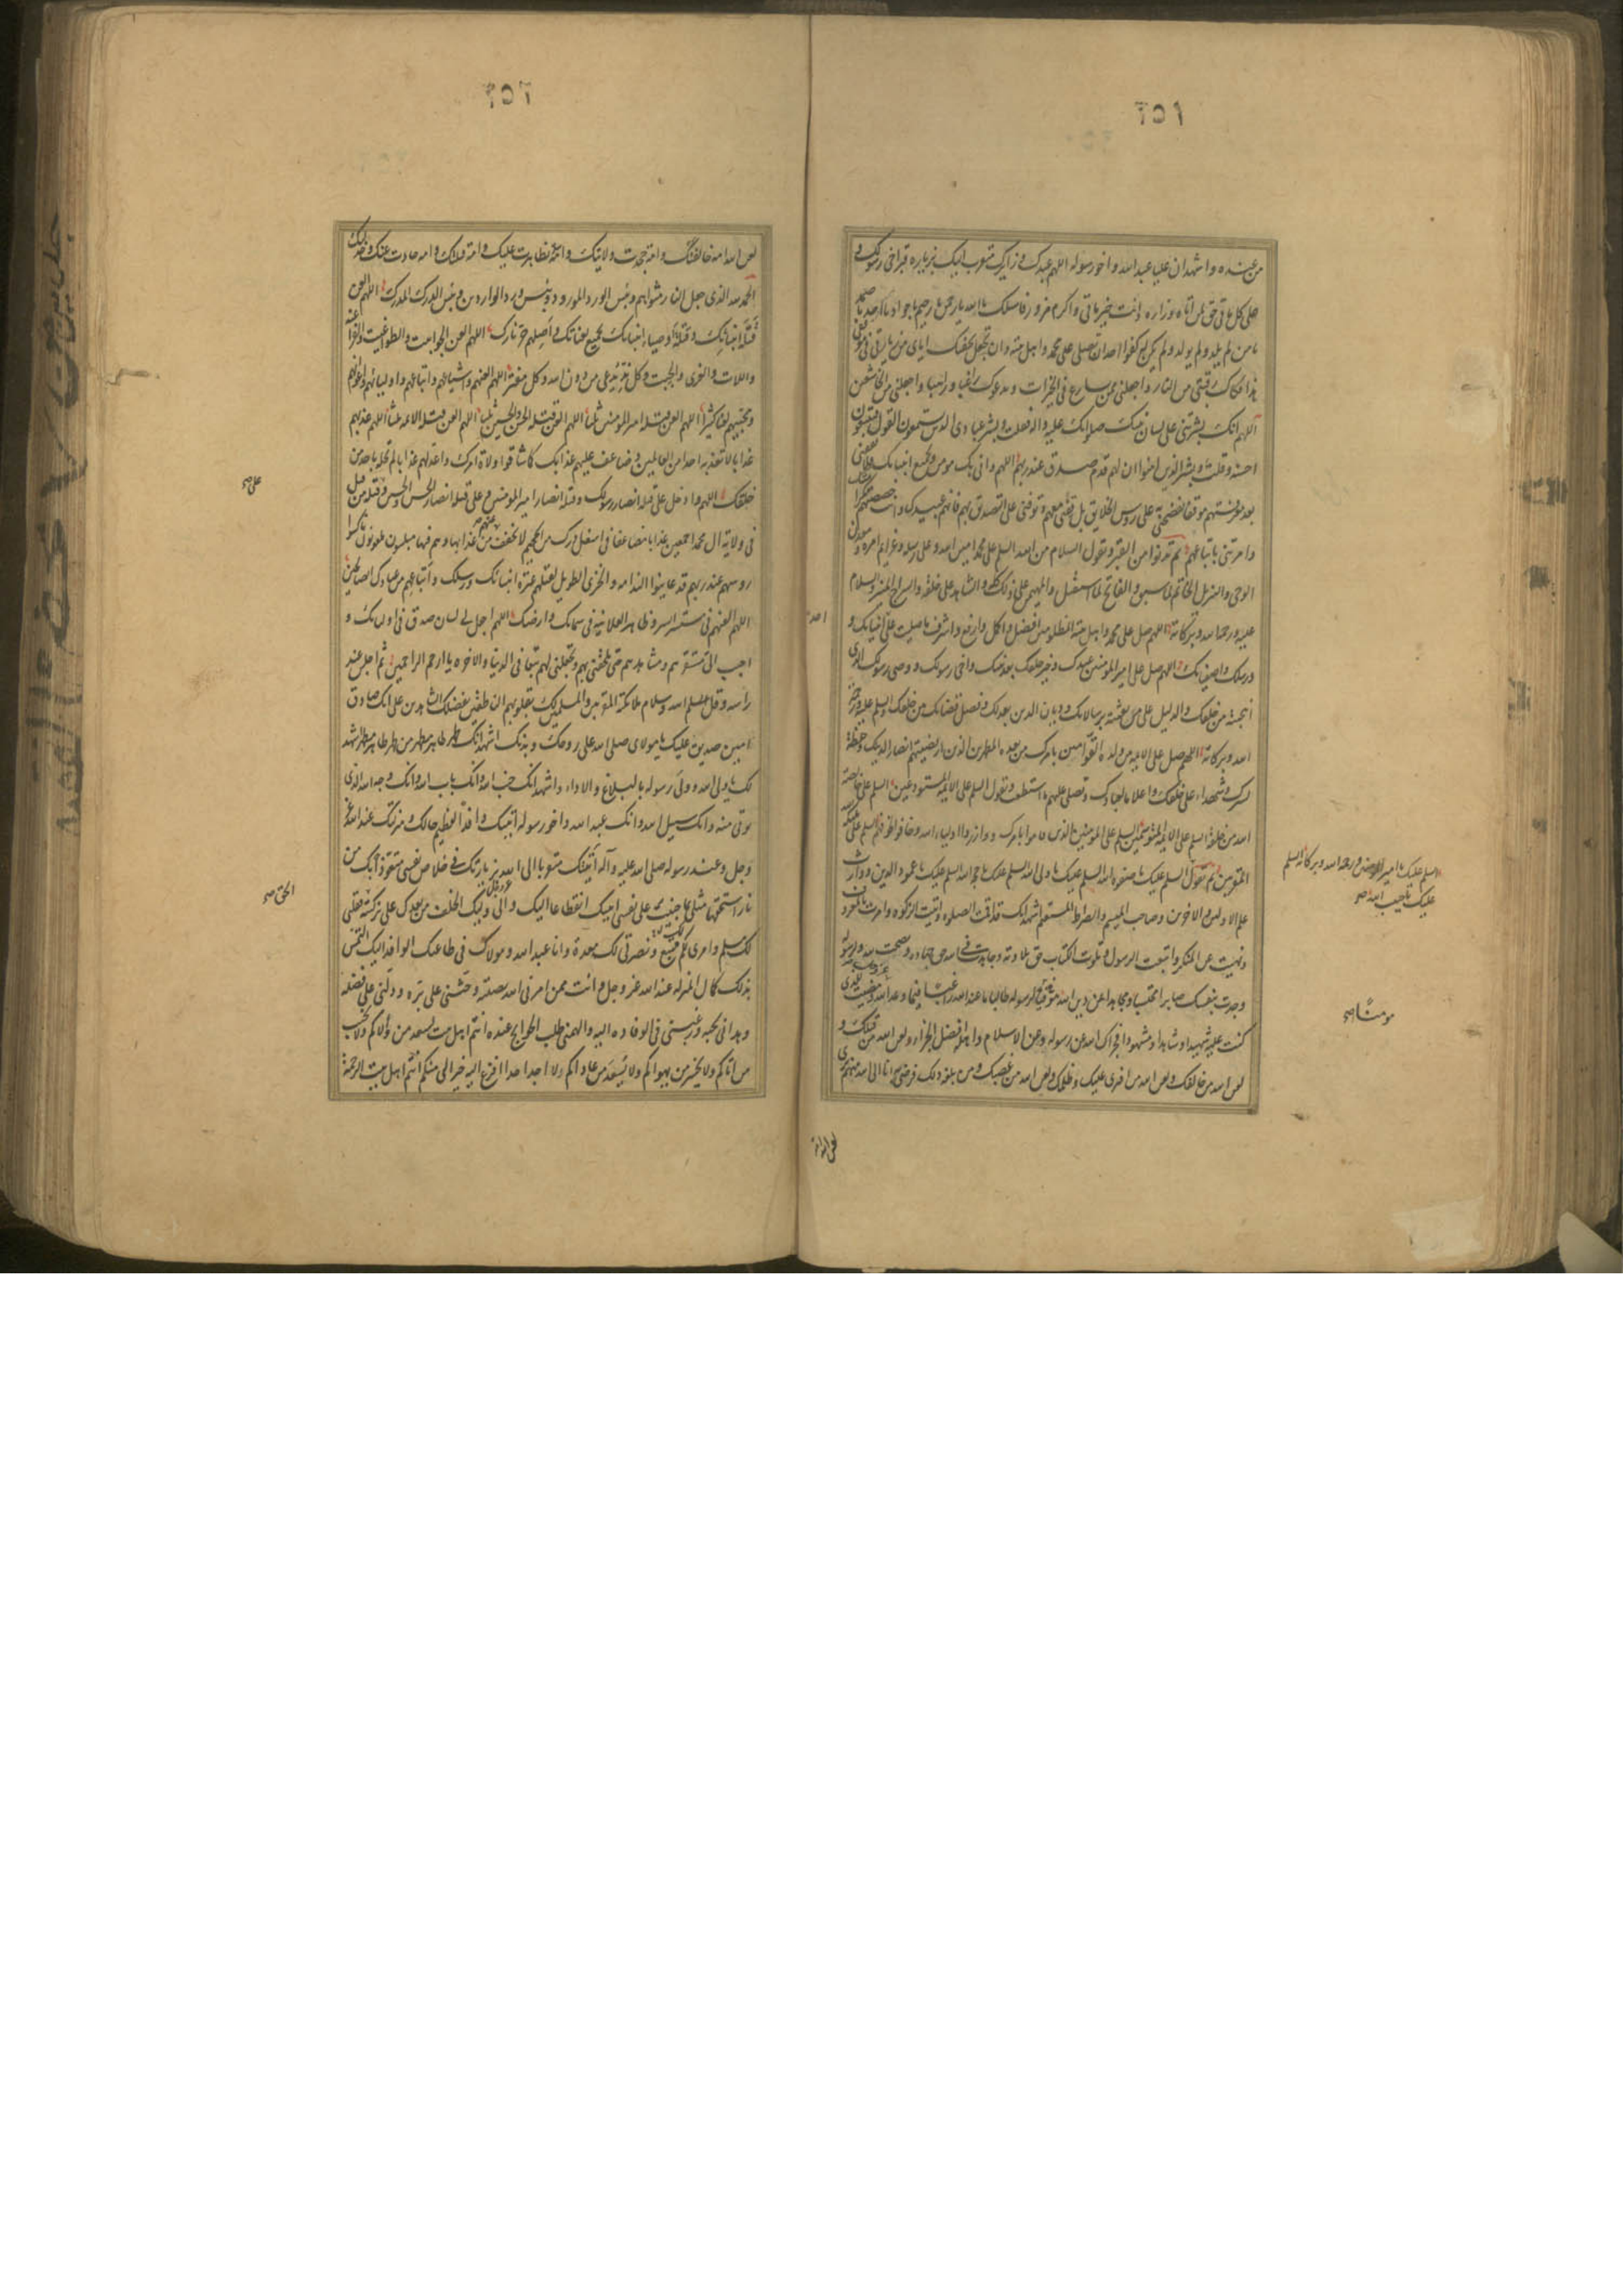 من عنده واشهدان عليا عبد الله واخو رسوله اللهم عبدك وزايرك متقرب اليك بزيارة قبر اخى رسولك و
على كل ماتى حق لمن اتاه وزاره وانت خير ماتى واكرم مزور فاسلك يا الله يا رحمن يا رحيم يا جواد يا احد يا صمد
يا من لم يلد ولم يولد ولم يكن له كفوا احد ان تصلى على محمد واهل بيته وان تجعل تحفتك اياى من زيارتى فى موقفى
هذا فكاك رقبتى من النار واجعلنى ممن يسارع فى الخيرات ويدعوك رغبا ورهبا واجعلنى من الخاشعين
اللهم انك بشرتنى على لسان نبيك صلواتك عليه واله فقلت وبشر عبادى الذين يستمعون القول فيتبعون
احسنه وقلت وبشر الذين امنوا ان لهم قدم صدق عند ربهم اللهم وانى بك مومن وبجميع انبيائك فلا تقفنى
بعد معرفتهم موقفا تفضحنى به على روس الخلايق بل قفنى معهم وتوفنى على التصديق بهم فانهم عبيدك وانت خصصتهم بكرامتك
وامرتنى باتباعهم ثم تدنوا من القبر وتقول السلام من الله السلم على محمد امين الله وعلى رسله وعزايم امره ومعدن
الوحى والتنزيل الخاتم لما سبق والفاتح لما استقبل والمهيمن على ذلك كله والشاهد على خلقه والسراج المنير والسلام
عليه ورحمة الله وبركاته اللهم صل على محمد واهل بيته المظلومين افضل واكمل وارفع واشرف ما صليت على انبيائك و
ورسلك واصفيائك اللهم صل على امير المومنين عبدك وخير خلقك بعد نبيك واخى رسولك ووصى رسولك الذى
انتجبته من خلقك والدليل على من بعثته برسالاتك وديان الدين بعدلك وفصل قضائك من خلقك والسلم عليه ورحمة
الله وبركاته اللهم صل على الائمة من ولده القوامين بامرك من بعده المطهرين الذين ارتضيتهم انصارا لدينك وحفظة
لسرك وشهداء على خلقك واعلاما لعبادك وتصلى عليهم ما استطعت وتقول السلم على الائمة المستودعين السلم على خالصة
الله من خلقه السلم على الائمة المتوسمين السلم على المومنين الذين قاموا بامرك ووازروا اولياء الله وخافوا لخوفهم السلم على ملئكة
المقربين ثم تقول السلم عليك يا صفوة الله السلم عليك يا ولى الله السلم عليك يا حجة الله السلم عليك يا عمود الدين ووارث
علم الاولين والاخرين وصاحب الميسم والصراط المستقيم اشهد انك قد اقمت الصلوة واتيت الزكوة وامرت بالمعروف
ونهيت عن المنكر واتبعت الرسول وتلوت الكتاب حق تلاوته وجاهدت فى الله حق جهاده ونصحت لله ولرسوله
وجدت بنفسك صابرا محتسبا ومجاهدا عن دين الله موقيا لرسوله طالبا ما عند الله راغبا فيما وعد الله ومضيت للذى
كنت عليه شهيدا وشاهدا ومشهودا فجزاك الله عن رسوله وعن الاسلام واهله افضل الجزاء ولعن الله من قتلك و
لعن الله من خالفك ولعن الله من افترى عليك وظلمك ولعن الله من غصبك ومن بلغه ذلك فرضى به انا الى الله منهم برى
السلم عليك يا امير المومنين ورحمة الله وبركاته السلم
عليك يا حبيب الله صح
مومنا صح
لعن الله امة خالفتك وامة جحدت ولايتك وامة تظاهرت عليك وامة قتلتك وامة حادت عنك وخذلتك
الحمد لله الذى جعل النار مثواهم وبئس الورد المورود وبئس ورد الواردين وبئس الدرك المدرك اللهم العن
قتلة انبيائك وقتلة اوصياء انبيائك بجميع لعناتك واصلهم حر نارك اللهم العن الجوابيت والطواغيت والفراعنة
واللات والعزى والجبت وكل ند يدعى من دون الله وكل مفتر اللهم العنهم واشياعهم واتباعهم واوليائهم واعوانهم
ومحبيهم لعنا كثيرا اللهم العن قتلة امير المومنين ثلثا اللهم العن قتلة الحسن والحسين ثلثا اللهم العن قتلة الائمة ثلثا اللهم عذبهم
عذابا لا تعذبه احدا من العالمين وضاعف عليهم عذابك كما شاقوا ولاة امرك واعد لهم عذابا لم تحله باحد من
خلقك اللهم وادخل على قتلة انصار رسولك وقتلة انصار امير المومنين وعلى قتلة انصار الحسن والحسين وقتلة من قتل
فى ولاية ال محمد اجمعين عذابا مضاعفا فى اسفل درك من الجحيم لا تخفف عنهم من عذابها وهم فيها مبلسون ملعونون ناكسوا
روسهم عند ربهم قد عاينوا الندامة والخزى الطويل لقتلهم عترة انبيائك ورسلك واتباعهم من عبادك الصالحين
اللهم العنهم فى مستسر السر وظاهر العلانية فى سمائك وارضك اللهم اجعل لى لسان صدق فى اوليائك و
احبب الى مستقرهم ومشاهدهم حتى تلحقنى بهم وتجعلنى لهم تبعا فى الدنيا والاخرة يا ارحم الراحمين ثم اجلس عند
راسه وقل سلام الله وسلام ملائكته المقربين والمسلمين لك بقلوبهم الناطقين بفضلك الشاهدين على انك صادق
امين صديق عليك يا مولاى صلى الله على روحك وبدنك اشهد انك طهر طاهر مطهر من طهر طاهر مطهر اشهد
لك يا ولى الله وولى رسوله بالبلاغ والاداء واشهد انك جنب الله وانك باب الله وانك وجه الله الذى
يوتى منه وانك سبيل الله وانك عبد الله واخو رسوله اتيتك وافدا لعظيم حالك ومنزلتك عند الله عز
وجل وعند رسوله صلى الله عليه واله اتيتك متقربا الى الله بزيارتك فى خلاص نفسى متعوذا بك من
نار استحقها مثلى بما جنيت على نفسى اتيتك انقطاعا اليك والى وليك الخلف من بعدك على تزكية فقلبى
لكم مسلم وامرى لكم متبع ونصرتى لك معدة وانا عبد الله ومولاك فى طاعتك الوافد اليك التمس
بذلك كمال المنزلة عند الله عز وجل وانت ممن امرنى الله بصلته وحثنى على بره ودلنى على فضله
وهدانى لحبه ورغبنى فى الوفادة اليه والهمنى طلب الحوايج عنده انتم اهل بيت يسعد من تولاكم ولا يخيب
من اتاكم ولا يخسر من يهواكم ولا يسعد من عاداكم ولا اجد احدا افزع اليه خيرا لى منكم انتم اهل بيت الرحمة
على صح